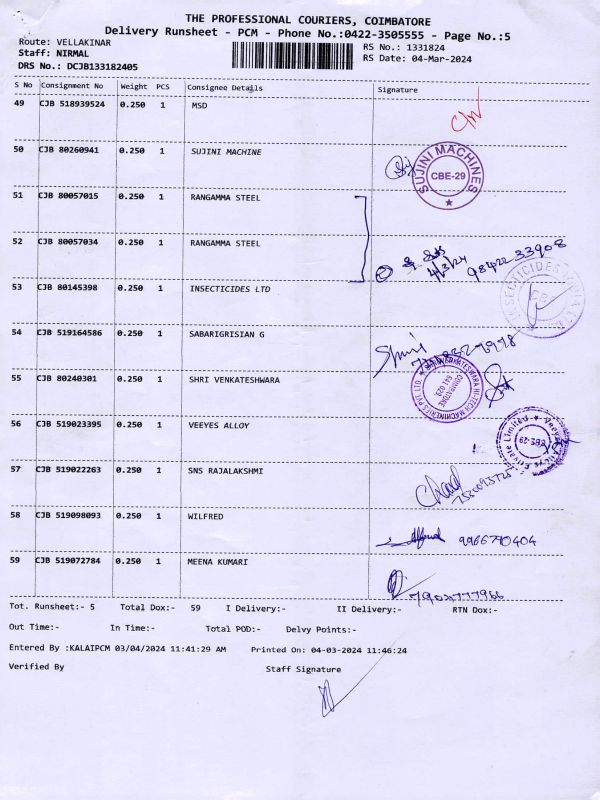 THE PROFESSIONAL COURIERS, COIMBATORE
Delivery Runsheet - PCM - Phone No.:0422-3505555 - Page No.:5
Route: VELLAKINAR
RS No.: 1331824
Staff: NIRMAL
RS Date: 04-Mar-2024
DRS No.: DCJB133182405
S No Consignment No Weight PCS Consignee Details Signature
49 CJB 518939524 0.250 1 MSD
50 CJB 80260941 0.250 1 SUJINI MACHINE
SUJINI MACHINES
CBE-29
51 CJB 80057015 0.250 1 RANGAMMA STEEL
52 CJB 80057034 0.250 1 RANGAMMA STEEL
4/3/24 98422 33908
53 CJB 80145398 0.250 1 INSECTICIDES LTD
54 CJB 519164586 0.250 1 SABARIGRISIAN G
55 CJB 80240301 1 0.250 1 SHRI VENKATESHWARA
COIMBATORE
641 029.
56 CJB 519023395 0.250 1 VEEYES ALLOY
CBE-29
57 CJB 519022263 0.250 1 SNS RAJALAKSHMI
58 CJB 519098093 0.250 1 WILFRED
9966770404
59 CJB 519072784 0.250 1 MEENA KUMARI
Tot. Runsheet:- 5 Total Dox:- 59 I Delivery:- II Delivery:- RTN Dox:-
Out Time:- In Time:- Total POD:- Delvy Points:-
Entered By :KALAIPCM 03/04/2024 11:41:29 AM Printed On: 04-03-2024 11:46:24
Verified By Staff Signature